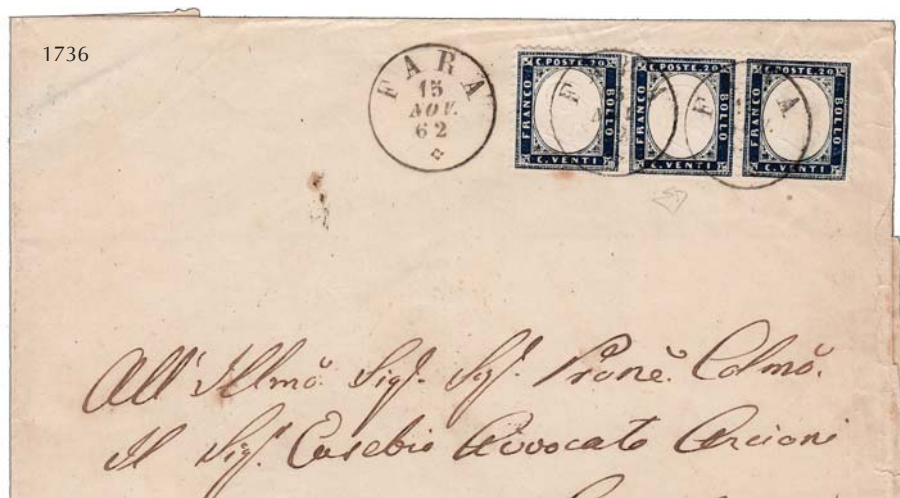 1736
FARA
15
NOV.
62
C. POSTE. 20
FRANCO
BOLLO
C. VENTI
C. POSTE. 20
FRANCO
BOLLO
C. VENTI
C. POSTE. 20
FRANCO
BOLLO
C. VENTI
All' Illmo. Sigr. Sigr. Prone. Colmo.
Il Sigr. Eusebio Avvocato Arcioni